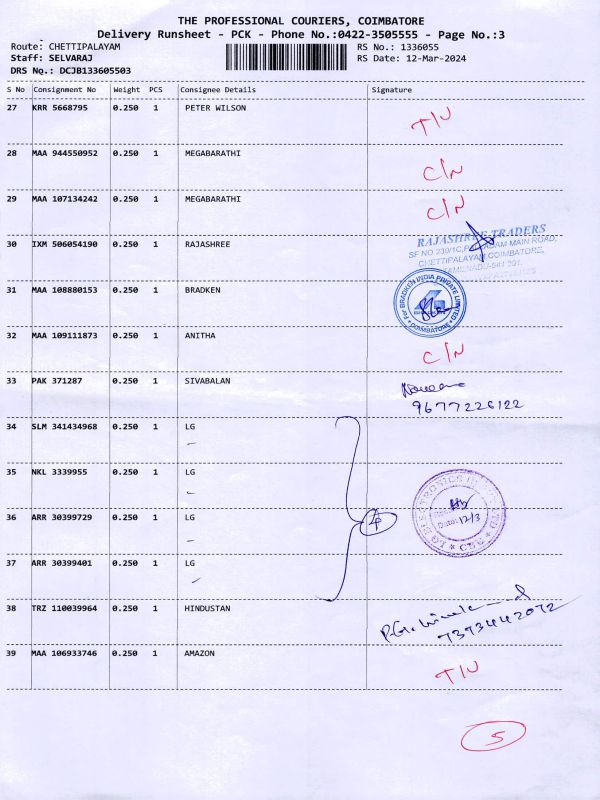 THE PROFESSIONAL COURIERS, COIMBATORE
Delivery Runsheet - PCK - Phone No.:0422-3505555 - Page No.:3
Route: CHETTIPALAYAM RS No.: 1336055
Staff: SELVARAJ RS Date: 12-Mar-2024
DRS No.: DCJB133605503
S No Consignment No Weight PCS Consignee Details Signature
27 KRR 5668795 0.250 1 PETER WILSON T/U
28 MAA 944550952 0.250 1 MEGABARATHI C/N
29 MAA 107134242 0.250 1 MEGABARATHI C/N
30 IXM 506054190 0.250 1 RAJASHREE
RAJASHREE TRADERS
MAIN ROAD,
CHETTIPALAYAM COIMBATORE,
31 MAA 108880153 0.250 1 BRADKEN
For BRADKEN INDIA PRIVATE LIMITED
COIMBATORE
32 MAA 109111873 0.250 1 ANITHA C/N
33 PAK 371287 0.250 1 SIVABALAN
9677226122
34 SLM 341434968 0.250 1 LG
35 NKL 3339955 0.250 1 LG
36 ARR 30399729 0.250 1 LG 4
LG ELECTRONICS
Date: 12/3
CBE
37 ARR 30399401 0.250 1 LG
38 TRZ 110039964 0.250 1 HINDUSTAN
7373442072
39 MAA 106933746 0.250 1 AMAZON T/U
5